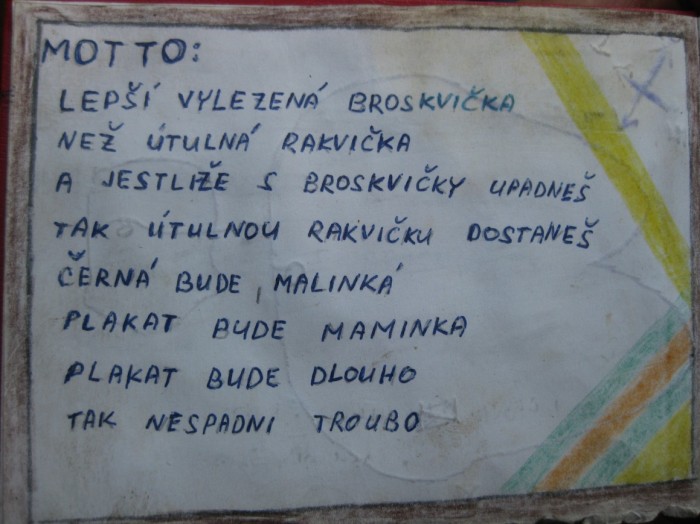 MOTTO:
LEPŠÍ VYLEZENÁ BROSKVIČKA
NEŽ ÚTULNÁ RAKVIČKA
A JESTLIŽE S BROSKVIČKY UPADNEŠ
TAK ÚTULNOU RAKVIČKU DOSTANEŠ
ČERNÁ BUDE, MALINKÁ
PLAKAT BUDE MAMINKA
PLAKAT BUDE DLOUHO
TAK NESPADNI TROUBO